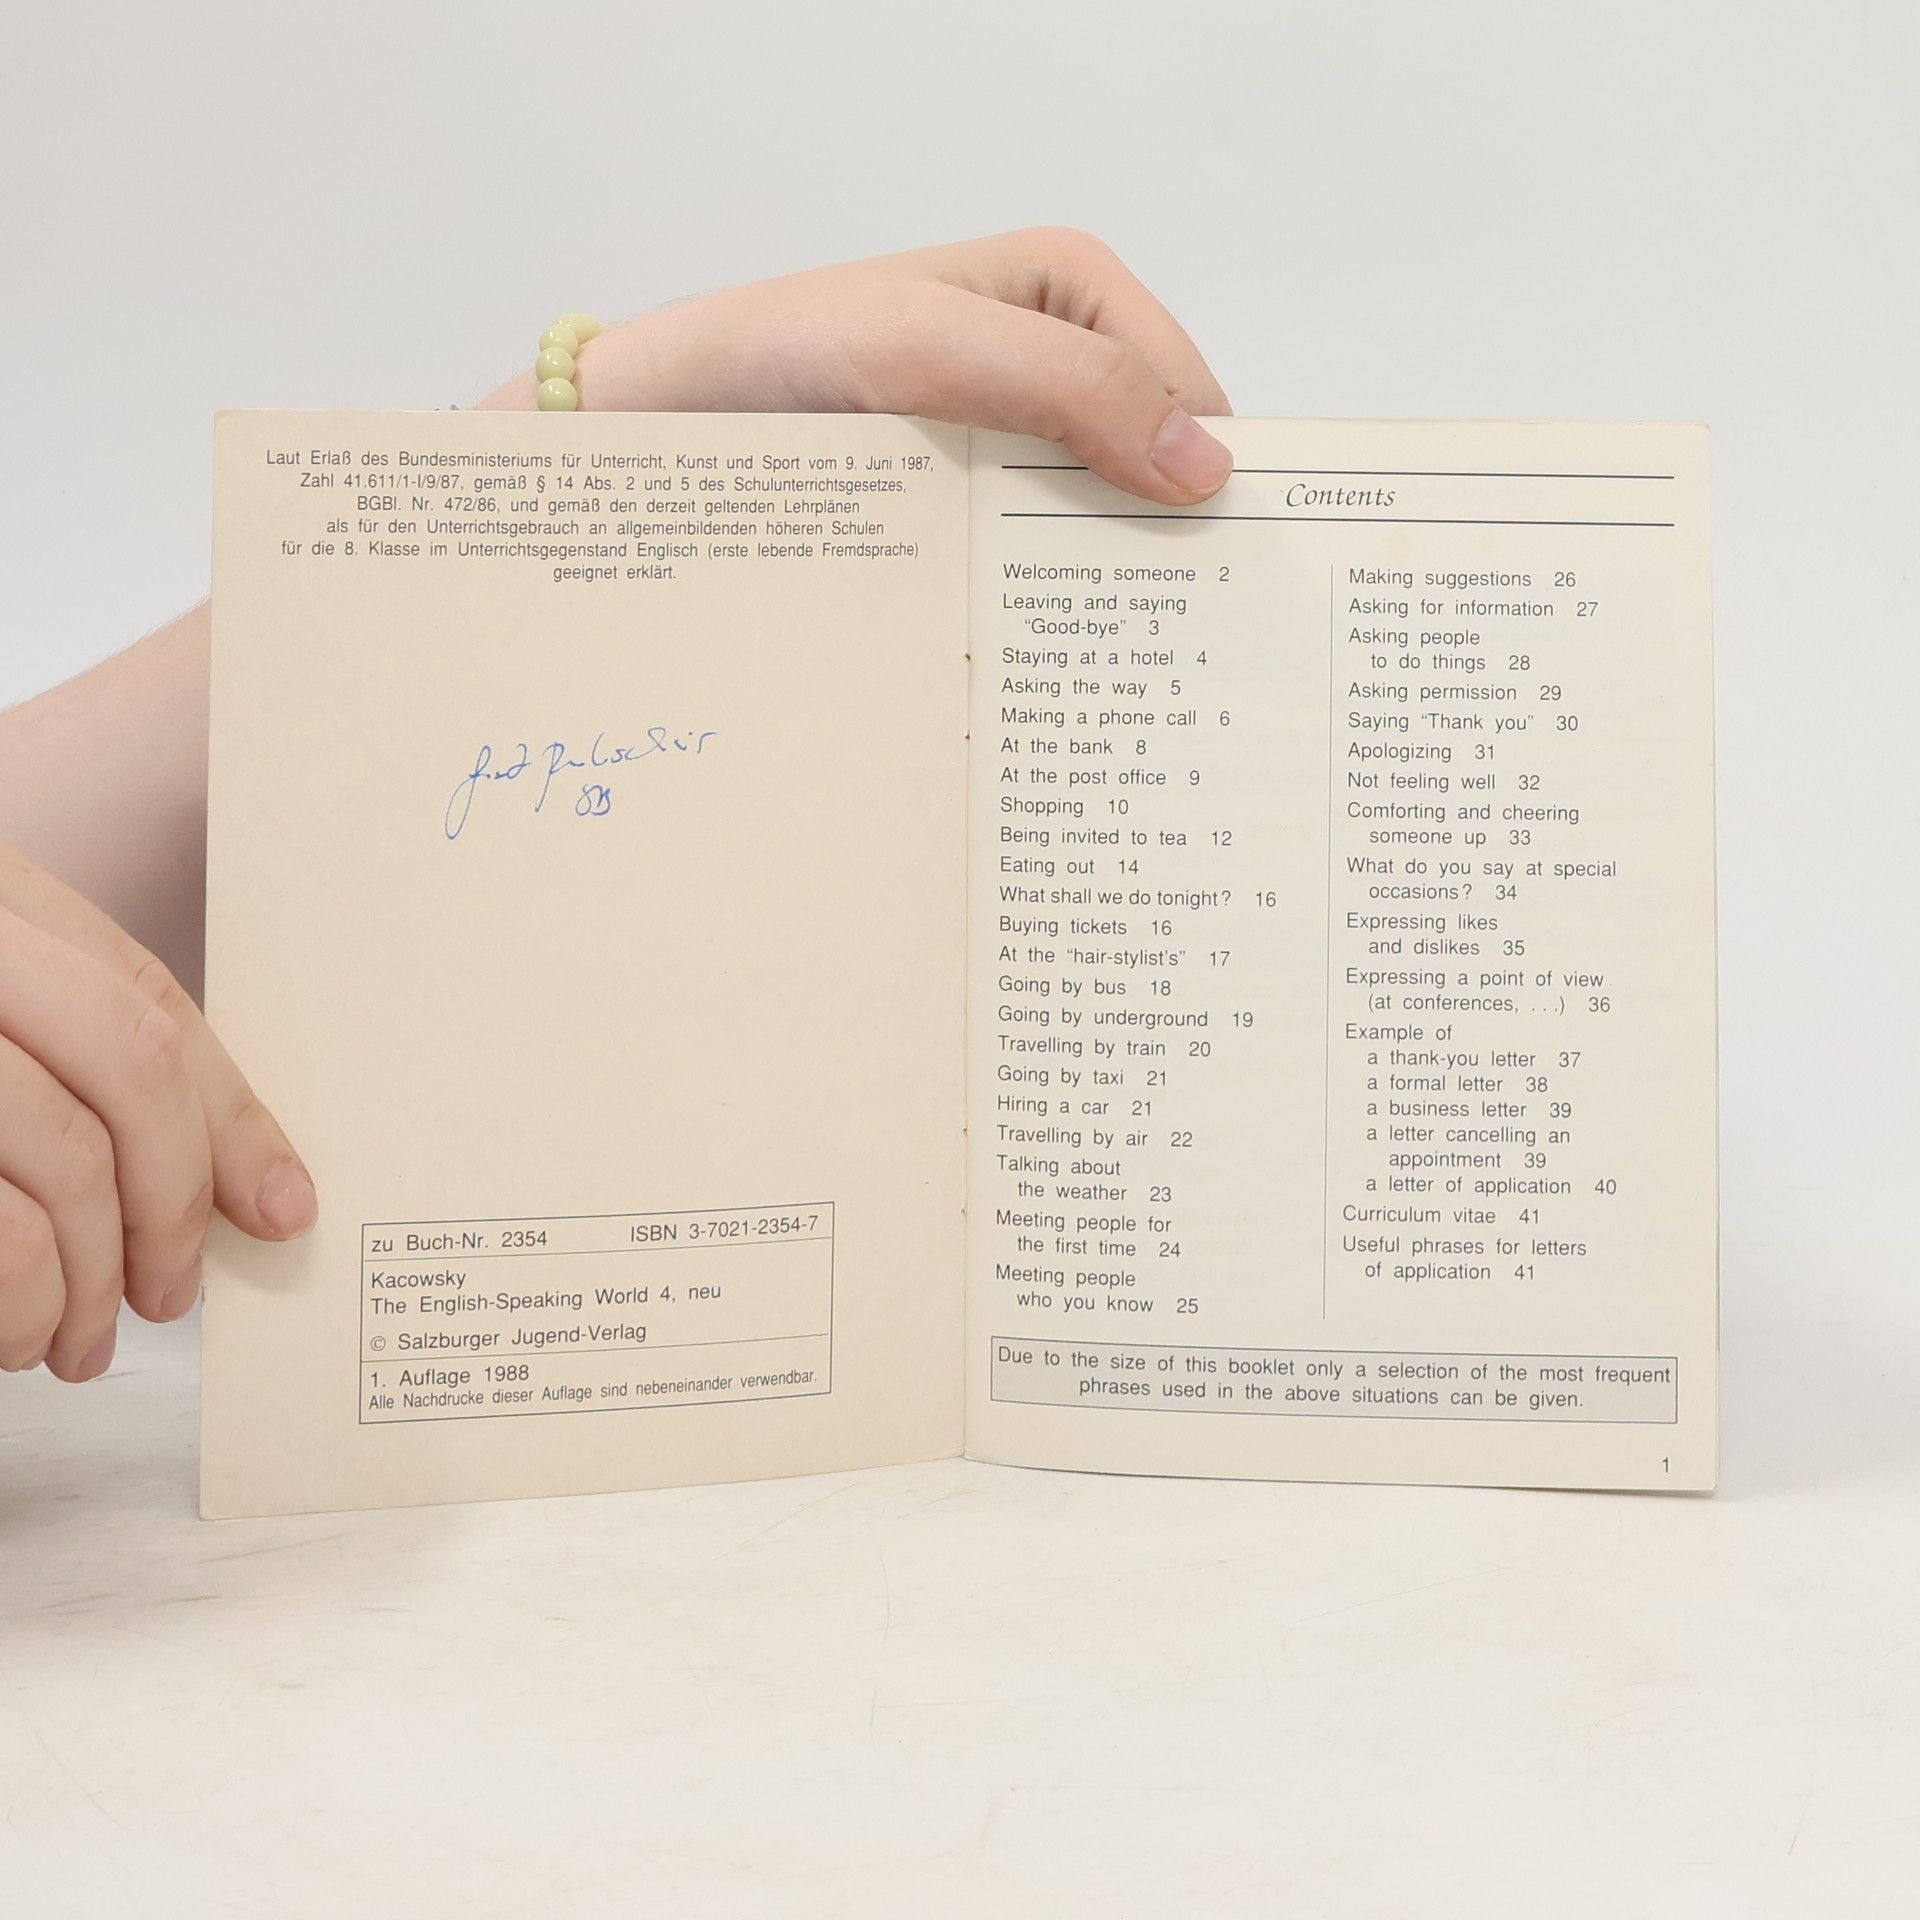 Laut Erlaß des Bundesministeriums für Unterricht, Kunst und Sport vom 9. Juni 1987,
Zahl 41.611/1-I/9/87, gemäß § 14 Abs. 2 und 5 des Schulunterrichtsgesetzes,
BGBl. Nr. 472/86, und gemäß den derzeit geltenden Lehrplänen
als für den Unterrichtsgebrauch an allgemeinbildenden höheren Schulen
für die 8. Klasse im Unterrichtsgegenstand Englisch (erste lebende Fremdsprache)
geeignet erklärt.
8B
zu Buch-Nr. 2354 ISBN 3-7021-2354-7
Kacowsky
The English-Speaking World 4, neu
© Salzburger Jugend-Verlag
1. Auflage 1988
Alle Nachdrucke dieser Auflage sind nebeneinander verwendbar.
Contents
Welcoming someone 2
Leaving and saying
“Good-bye” 3
Staying at a hotel 4
Asking the way 5
Making a phone call 6
At the bank 8
At the post office 9
Shopping 10
Being invited to tea 12
Eating out 14
What shall we do tonight? 16
Buying tickets 16
At the “hair-stylist’s” 17
Going by bus 18
Going by underground 19
Travelling by train 20
Going by taxi 21
Hiring a car 21
Travelling by air 22
Talking about
the weather 23
Meeting people for
the first time 24
Meeting people
who you know 25
Making suggestions 26
Asking for information 27
Asking people
to do things 28
Asking permission 29
Saying “Thank you” 30
Apologizing 31
Not feeling well 32
Comforting and cheering
someone up 33
What do you say at special
occasions? 34
Expressing likes
and dislikes 35
Expressing a point of view
(at conferences, ...) 36
Example of
a thank-you letter 37
a formal letter 38
a business letter 39
a letter cancelling an
appointment 39
a letter of application 40
Curriculum vitae 41
Useful phrases for letters
of application 41
Due to the size of this booklet only a selection of the most frequent
phrases used in the above situations can be given.
1